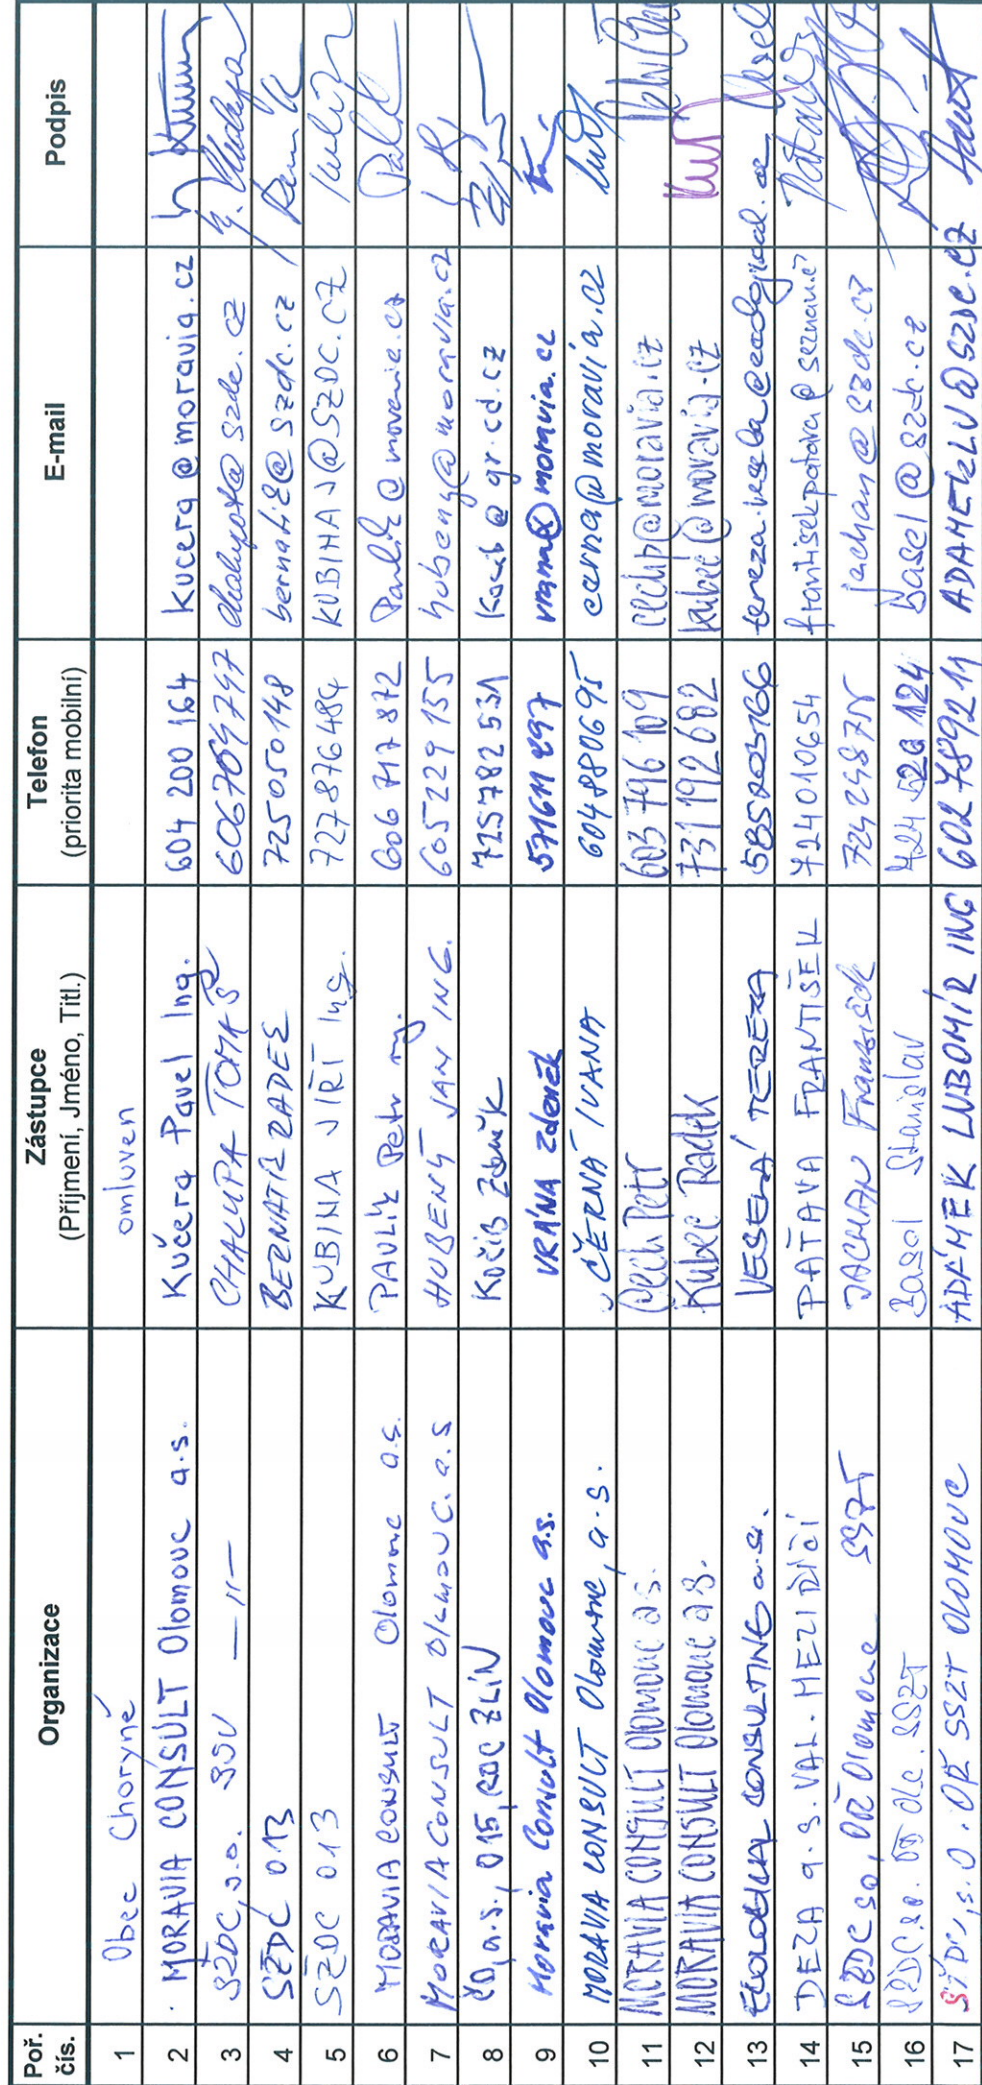 Poř. čís. Organizace Zástupce (Příjmení, Jméno, Titl.) Telefon (priorita mobilní) E-mail Podpis
1 Obec Choryně omluven
2 MORAVIA CONSULT Olomouc a.s. Kučera Pavel Ing. 604 200 164 kucera@moravia.cz
3 SŽDC, s.o. SSV —"— CHALUPA TOMÁŠ 606709747 chalupat@szdc.cz
4 SŽDC 013 BERNATÍK RADEK 725050148 bernatik@szdc.cz
5 SŽDC 013 KUBINA JIŘÍ Ing. 727876484 KUBINAJ@SZDC.CZ
6 MORAVIA CONSULT Olomouc a.s. PAVLÍK Petr ing. 606 717 872 Pavlik@moravia.cz
7 MORAVIA CONSULT Olomouc a.s HUBENÝ JAN ING. 605229155 hubeny@moravia.cz
8 ČD, a.s., 015, RCC ZLÍN Kočib Zdeněk 725782531 Kocib@gr.cd.cz
9 Moravia Consult Olomouc a.s. VRÁNA Zdeněk vrana@moravia.cz
10 MORAVIA CONSULT Olomouc, a.s. ČERNÁ IVANA 604880695 cerna@moravia.cz
11 MORAVIA CONSULT Olomouc a.s. Čech Petr 603 796 109 cechp@moravia.cz
12 MORAVIA CONSULT Olomouc a.s. Kubec Radek 731 192 682 kubec@moravia.cz
13 ECOLOGICAL CONSULTING a.s. VESELÁ TEREZA 585203166
14 DEZA a.s. VAL. MEZIŘÍČÍ PAŤAVA FRANTIŠEK 724010654 frantisekpatava@seznam.cz
15 SŽDC so, OŘ Olomouc SSZT JACHAN František 724248875 jachan@szdc.cz
16 SŽDC s.o. OŘ Olc. SSZT Basel Stanislav Basel@szdc.cz
17 SŽDC, s.o. OŘ SSZT OLOMOUC ADÁMEK LUBOMÍR ING 602789211 ADAMEKLU@SZDC.CZ